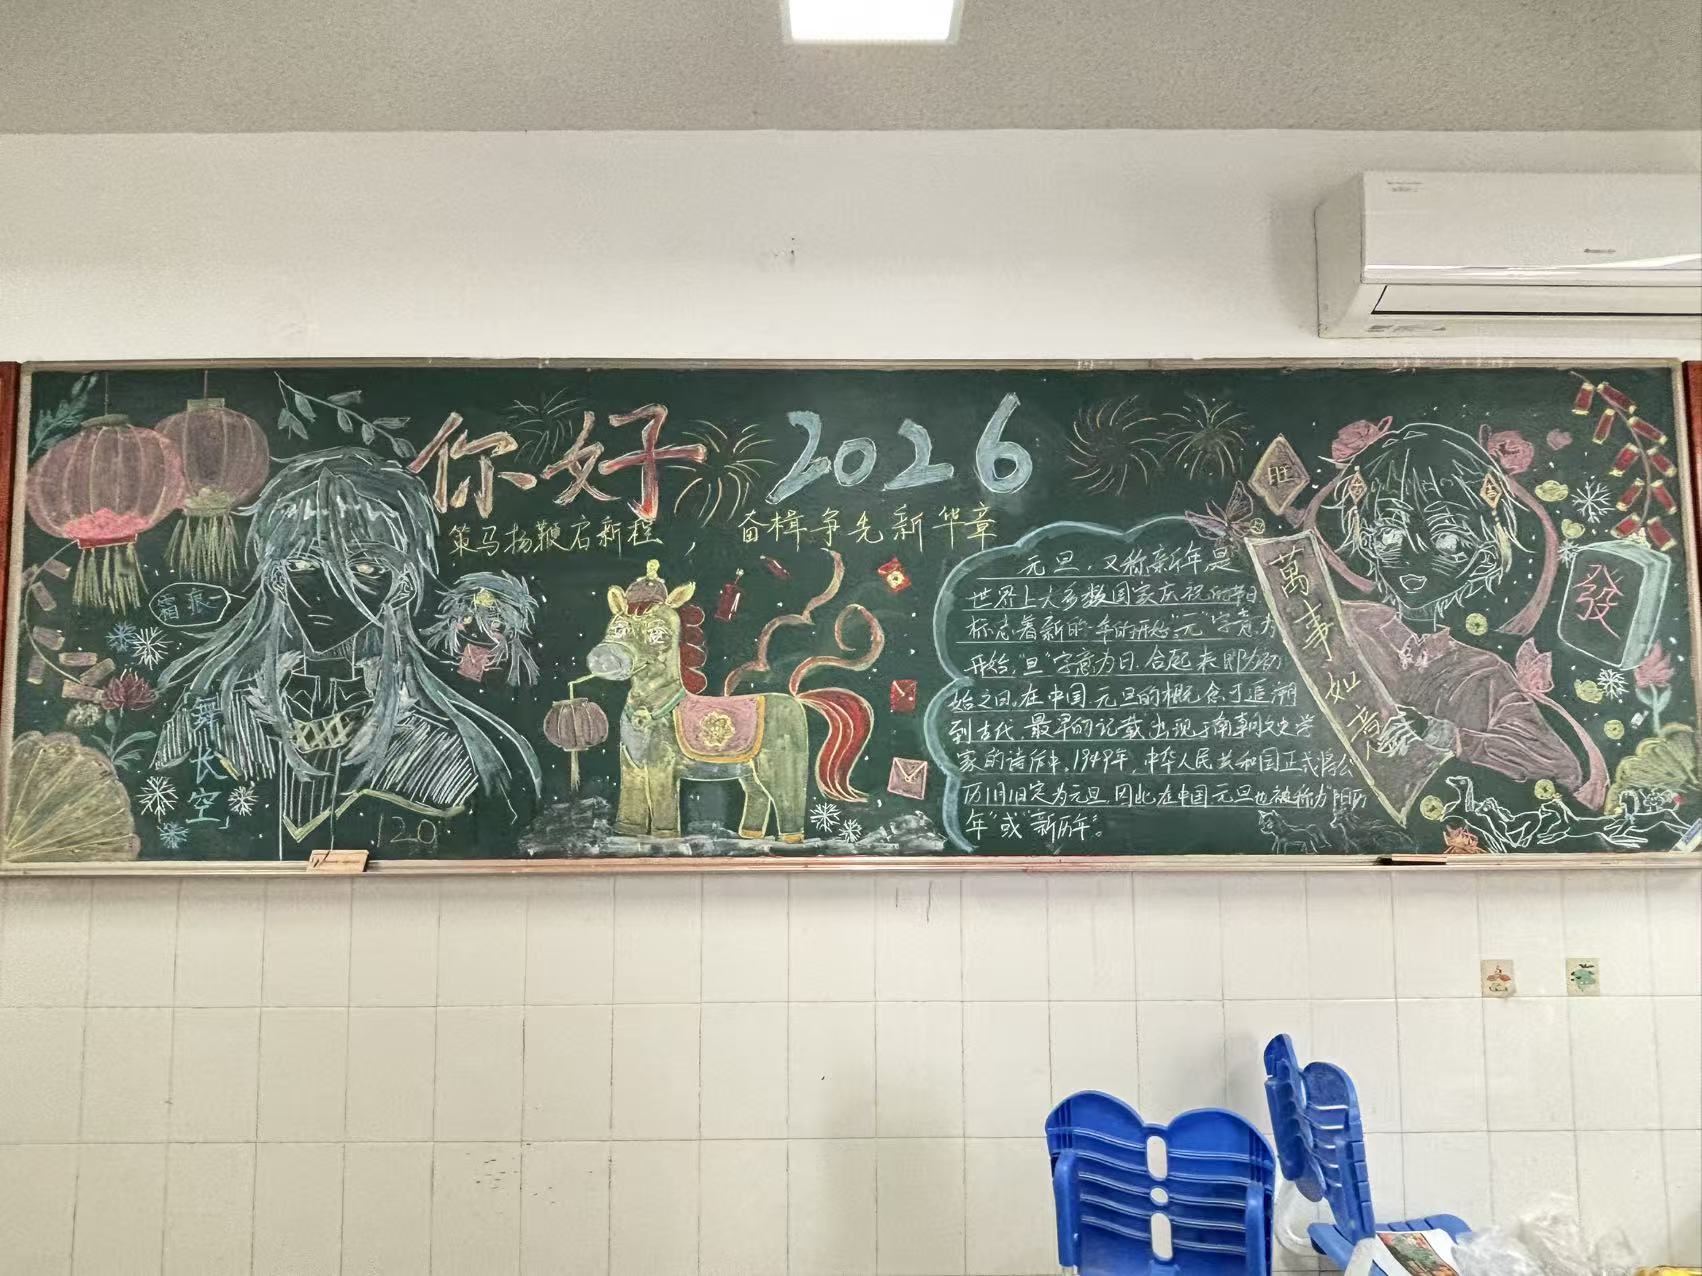 你好 2026
策马扬鞭启新程，奋楫争先新华章
霜痕
舞长空」
120
元旦，又称新年，是
世界上大多数国家庆祝的节日
标志着新的一年的开始"元"字意为
开始，"旦"字意为日，合起来即为初
始之日。在中国元旦的概念可追溯
到古代，最早的记载出现于南朝文史学
家的诗作中。1949年，中华人民共和国正式将公
历1月1日定为元旦，因此在中国元旦也被称为"阳历
年"或"新历年"。
旺
萬事如意
發